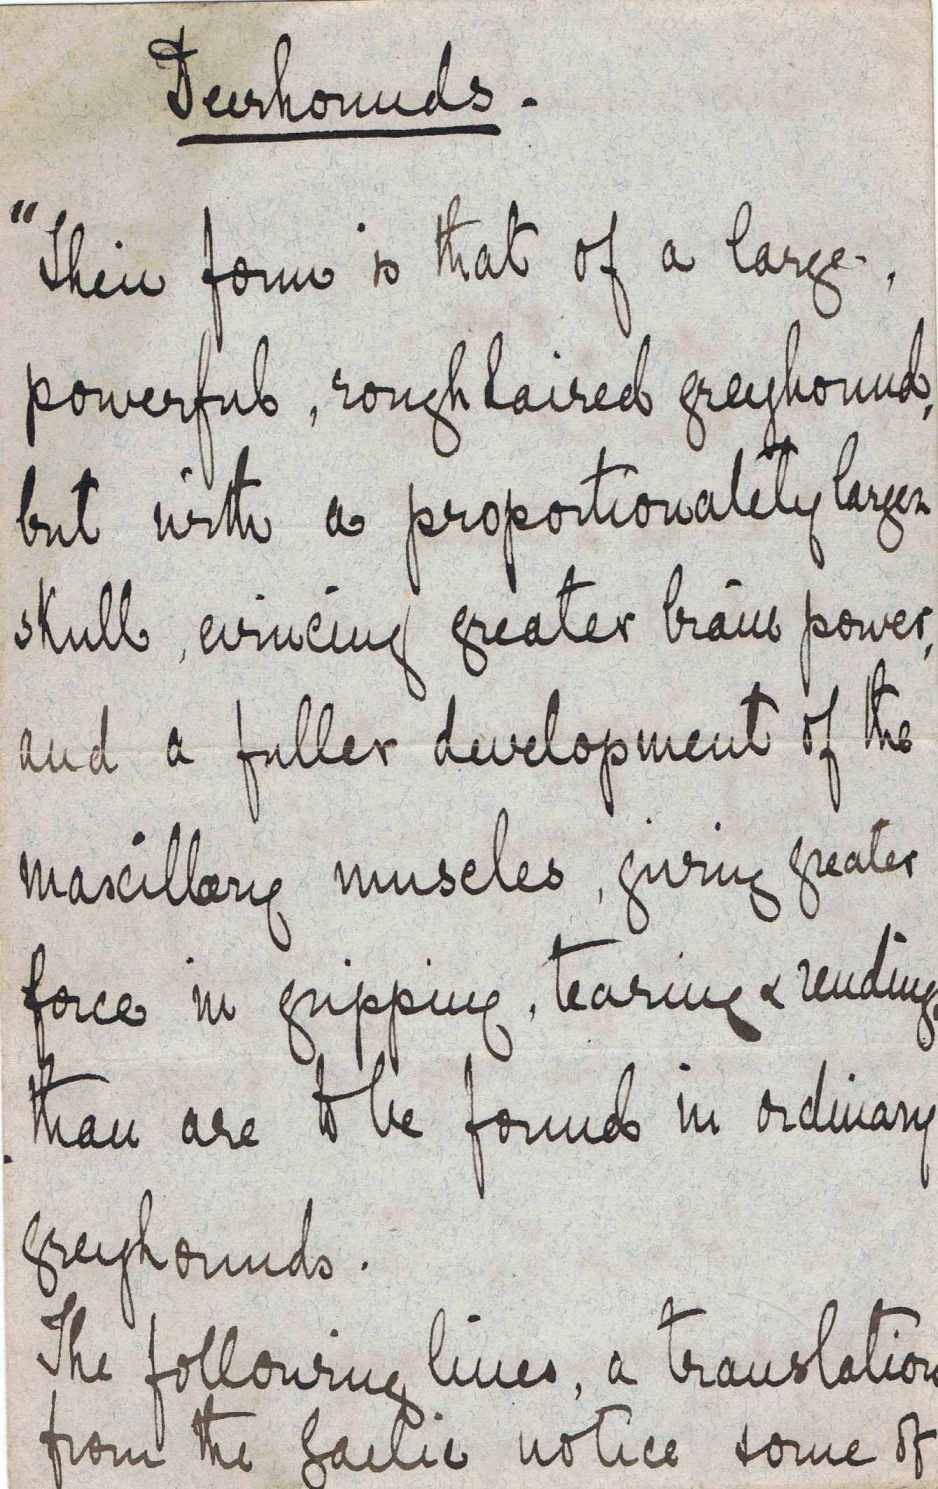 Deerhounds.
"Their form is that of a large,
powerful, rough haired greyhound,
but with a proportionately larger
skull, evincing greater brain power,
and a fuller development of the
maxillary muscles, giving greater
force in gripping, tearing & rending,
than are to be found in ordinary
greyhounds.
The following lines, a translation
from the Gaelic notice some of